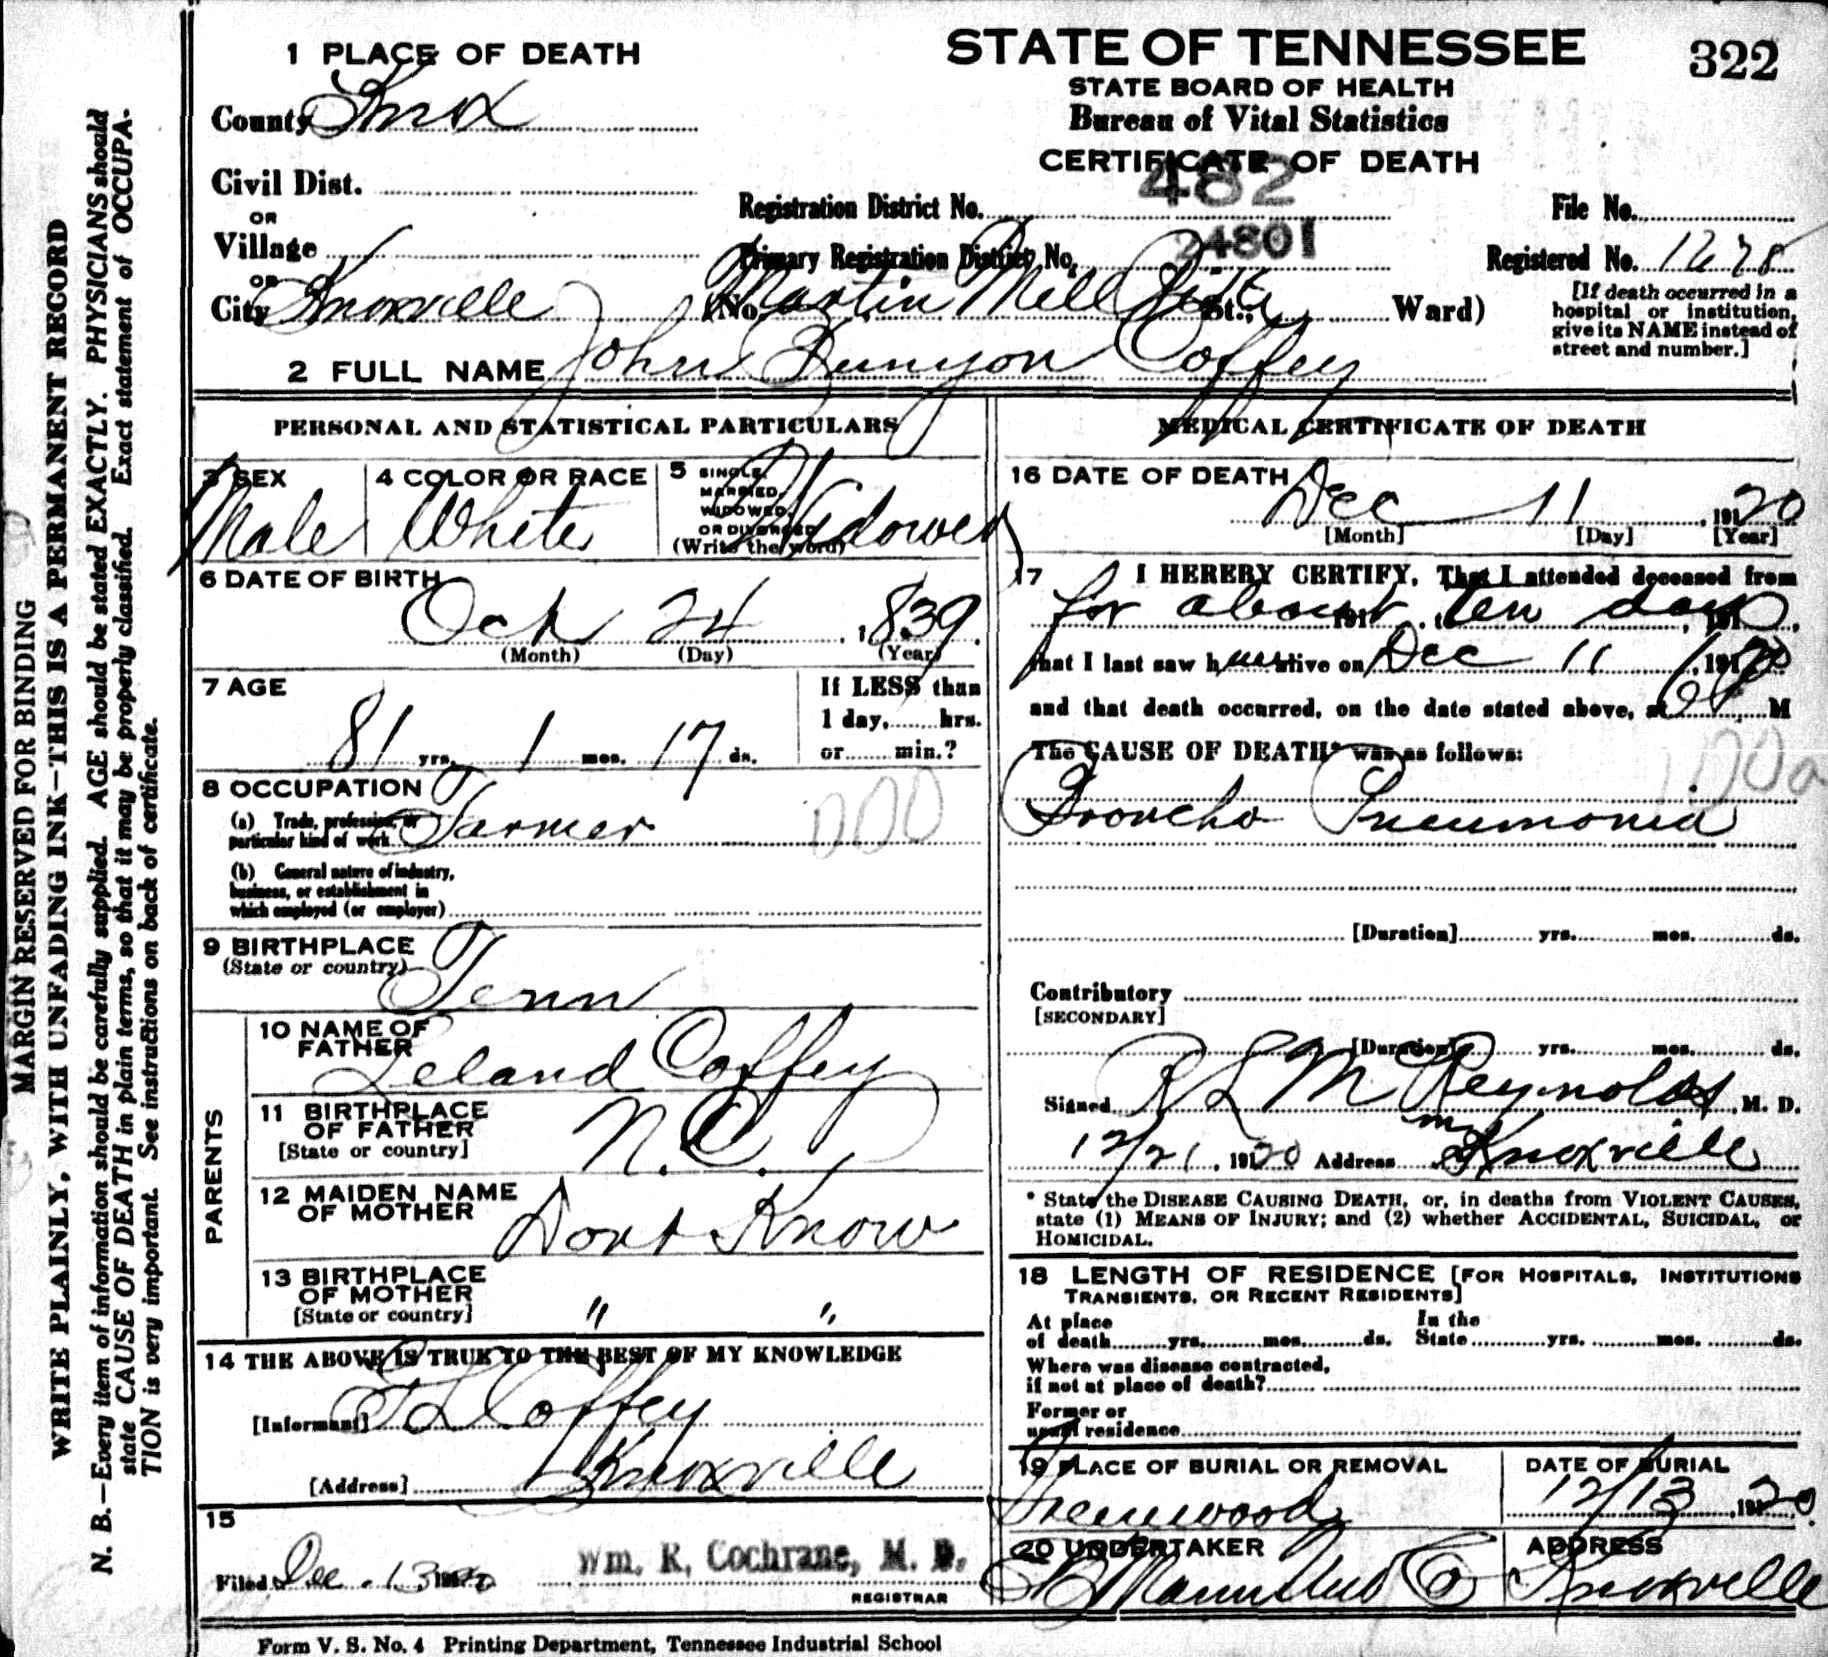 MARGIN RESERVED FOR BINDING
WRITE PLAINLY, WITH UNFADING INK—THIS IS A PERMANENT RECORD
N. B.—Every item of information should be carefully supplied. AGE should be stated EXACTLY. PHYSICIANS should
state CAUSE OF DEATH in plain terms, so that it may be properly classified. Exact statement of OCCUPA-
TION is very important. See instructions on back of certificate.
STATE OF TENNESSEE
322
STATE BOARD OF HEALTH
Bureau of Vital Statistics
CERTIFICATE OF DEATH
1 PLACE OF DEATH
County Knox
Civil Dist.
OR
Village
OR
City Knoxville
Registration District No. 482
File No.
Primary Registration District No. 24801
Registered No.
(No. Martin Mill Pike St.; Ward)
[If death occurred in a
hospital or institution,
give its NAME instead of
street and number.]
2 FULL NAME John Bunyon Coffey
PERSONAL AND STATISTICAL PARTICULARS
3 SEX
Male
4 COLOR OR RACE
White
5 SINGLE,
MARRIED,
WIDOWED,
OR DIVORCED
(Write the word)
Widowed
6 DATE OF BIRTH
Oct 24, 1839.
(Month) (Day) (Year)
7 AGE
81 yrs. 1 mos. 17 ds.
If LESS than
1 day, hrs.
or min.?
8 OCCUPATION
(a) Trade, profession, or
particular kind of work Farmer
000
(b) General nature of industry,
business, or establishment in
which employed (or employer)
9 BIRTHPLACE
(State or country)
Tenn
PARENTS
10 NAME OF
FATHER
Leland Coffey
11 BIRTHPLACE
OF FATHER
[State or country]
N.C.
12 MAIDEN NAME
OF MOTHER
Dont Know
13 BIRTHPLACE
OF MOTHER
[State or country]
" "
14 THE ABOVE IS TRUE TO THE BEST OF MY KNOWLEDGE
[Informant] Coffey
[Address] Knoxville
15
Filed Dec. 13 1920
Wm. R. Cochrane, M. D.
REGISTRAR
MEDICAL CERTIFICATE OF DEATH
16 DATE OF DEATH
Dec 11, 1920
[Month] [Day] [Year]
17 I HEREBY CERTIFY, That I attended deceased from
for about ten days
that I last saw him alive on Dec 11, 1920
and that death occurred, on the date stated above, at M
The CAUSE OF DEATH* was as follows:
Broncho Pneumonia
100a
[Duration] yrs. mos. ds.
Contributory
[SECONDARY]
[Duration] yrs. mos. ds.
Signed R L McReynolds, M. D.
12/21, 1920 Address Knoxville
* State the DISEASE CAUSING DEATH, or, in deaths from VIOLENT CAUSES,
state (1) MEANS OF INJURY; and (2) whether ACCIDENTAL, SUICIDAL, or
HOMICIDAL.
18 LENGTH OF RESIDENCE [FOR HOSPITALS, INSTITUTIONS
TRANSIENTS, OR RECENT RESIDENTS]
At place
of death yrs. mos. ds.
In the
State yrs. mos. ds.
Where was disease contracted,
if not at place of death?
Former or
usual residence
19 PLACE OF BURIAL OR REMOVAL
Greenwood
DATE OF BURIAL
12/13, 1920.
20 UNDERTAKER
E B Mann Und Co
ADDRESS
Knoxville
Form V. S. No. 4 Printing Department, Tennessee Industrial School